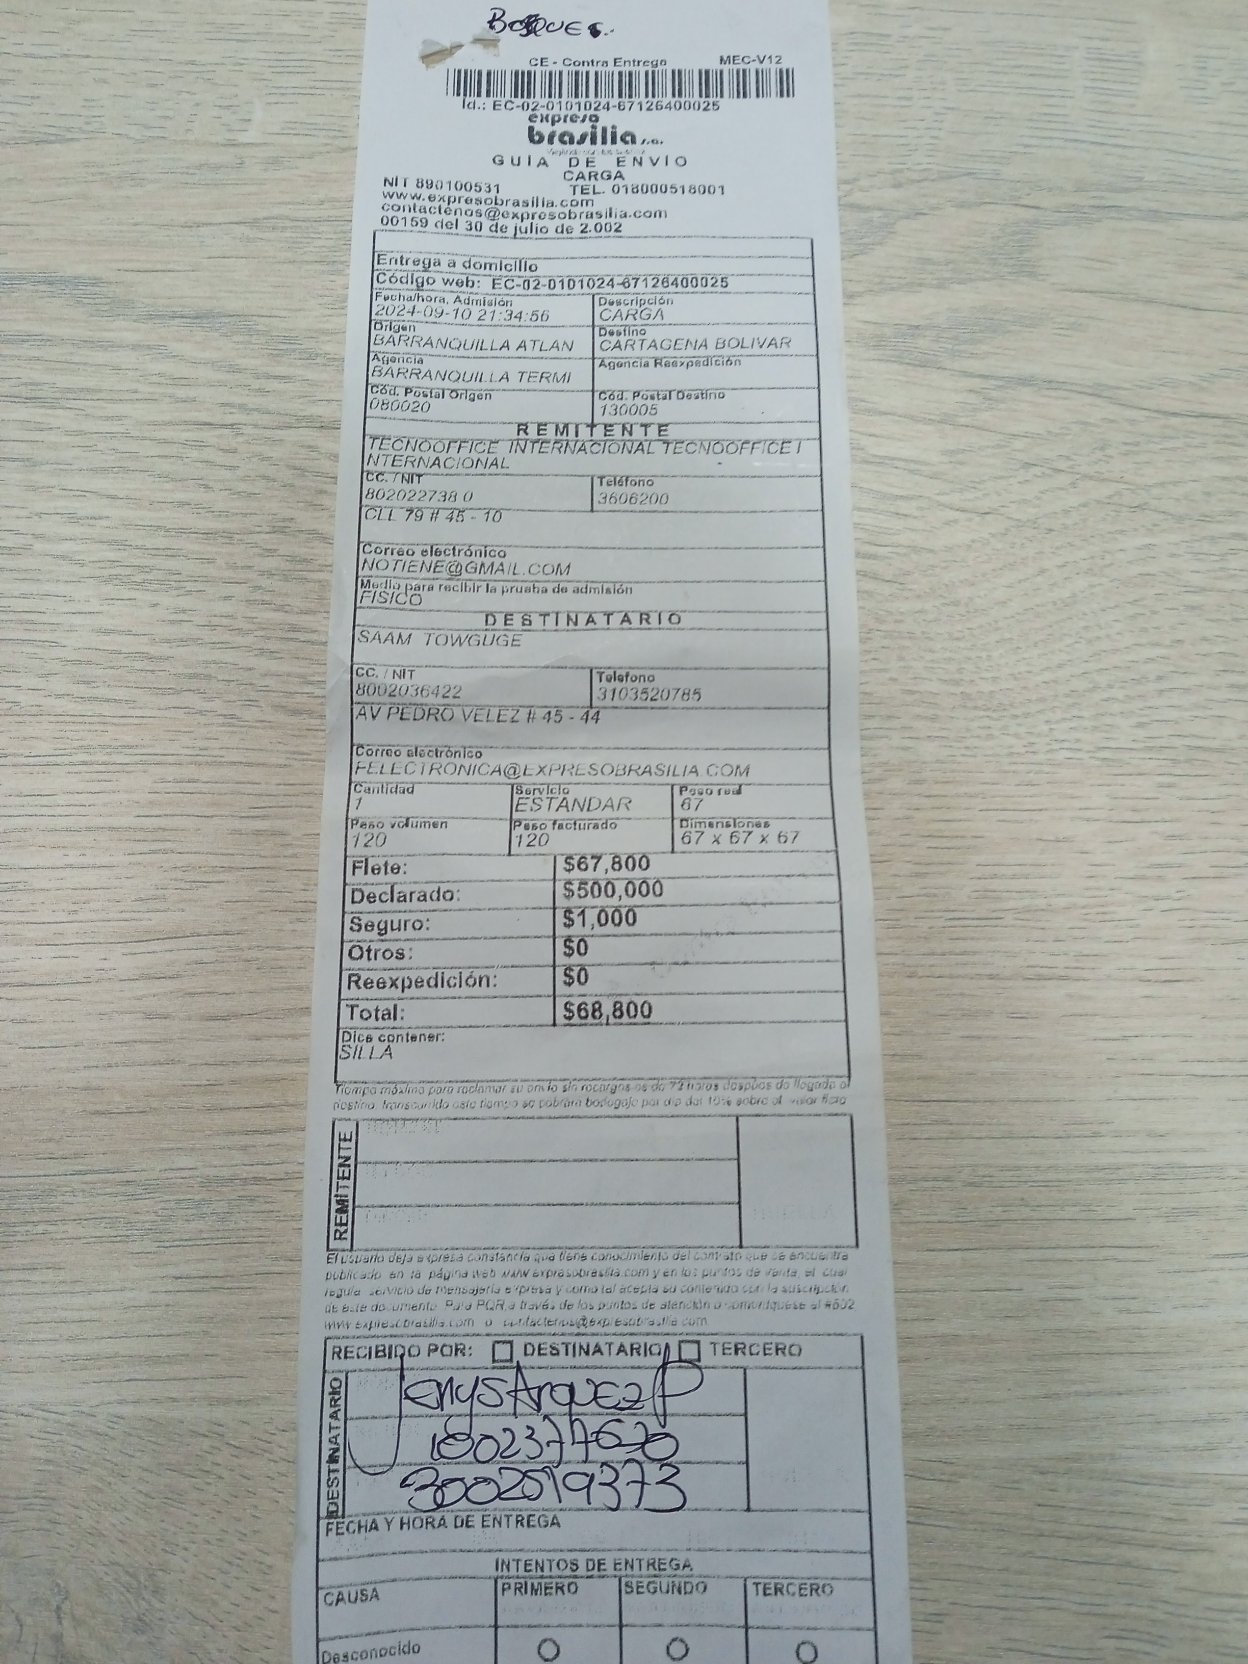 BOSQUE
CE - Contra Entrega MEC-V12
Id.: EC-02-0101024-67126400025
expreso
brasilia s.a.
GUIA DE ENVIO
CARGA
NIT 890100531 TEL. 018000518001
www.expresobrasilia.com
contactenos@expresobrasilia.com
00159 del 30 de julio de 2.002
Entrega a domicilio
Código web: EC-02-0101024-67126400025
Fecha/hora, Admisión Descripción
2024-09-10 21:34:56 CARGA
Origen Destino
BARRANQUILLA ATLAN CARTAGENA BOLIVAR
Agencia Agencia Reexpedición
BARRANQUILLA TERMI
Cód. Postal Origen Cód. Postal Destino
080020 130005
REMITENTE
TECNOOFFICE INTERNACIONAL TECNOOFFICE I
NTERNACIONAL
CC. / NIT Teléfono
802022738 0 3606200
CLL 79 # 45 - 10
Correo electrónico
NOTIENE@GMAIL.COM
Medio para recibir la prueba de admisión
FISICO
DESTINATARIO
SAAM TOWGUGE
CC. / NIT Telefono
8002036422 3103520785
AV PEDRO VELEZ # 45 - 44
Correo electrónico
FELECTRONICA@EXPRESOBRASILIA.COM
Cantidad Servicio Peso real
1 ESTANDAR 67
Peso volumen Peso facturado Dimensiones
120 120 67 x 67 x 67
Flete: $67,800
Declarado: $500,000
Seguro: $1,000
Otros: $0
Reexpedición: $0
Total: $68,800
Dice contener:
SILLA
Tiempo máximo para reclamar su envío sin recargos es de 72 horas después de llegada al
destino, transcurrido este tiempo se cobrara bodegaje por día del 10% sobre el valor flete
REMITENTE
El usuario deja expresa constancia que tiene conocimiento del contrato que se encuentra
publicado en la página web www.expresobrasilia.com y en los puntos de venta, el cual
regula servicio de mensajería expresa y como tal acepta su contenido con la suscripción
de este documento. Para PQR a través de los puntos de atención o comuníquese al #502
www.expresobrasilia.com o contactenos@expresobrasilia.com
RECIBIDO POR: DESTINATARIO TERCERO
DESTINATARIO
Jenys Arquez P
1002377630
3002519373
FECHA Y HORA DE ENTREGA
INTENTOS DE ENTREGA
CAUSA PRIMERO SEGUNDO TERCERO
Desconocido